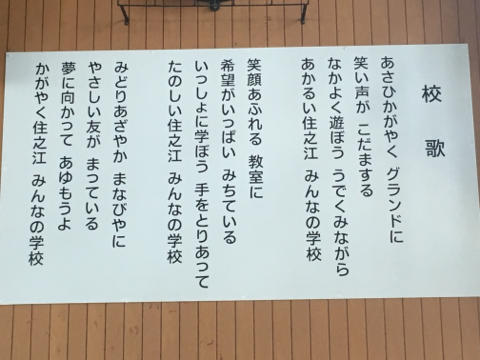 校歌
あさひかがやく グランドに
笑い声が こだまする
なかよく遊ぼう うでくみながら
あかるい住之江 みんなの学校
笑顔あふれる 教室に
希望がいっぱい みちている
いっしょに学ぼう 手をとりあって
たのしい住之江 みんなの学校
みどりあざやか まなびやに
やさしい友が まっている
夢に向かって あゆもうよ
かがやく住之江 みんなの学校